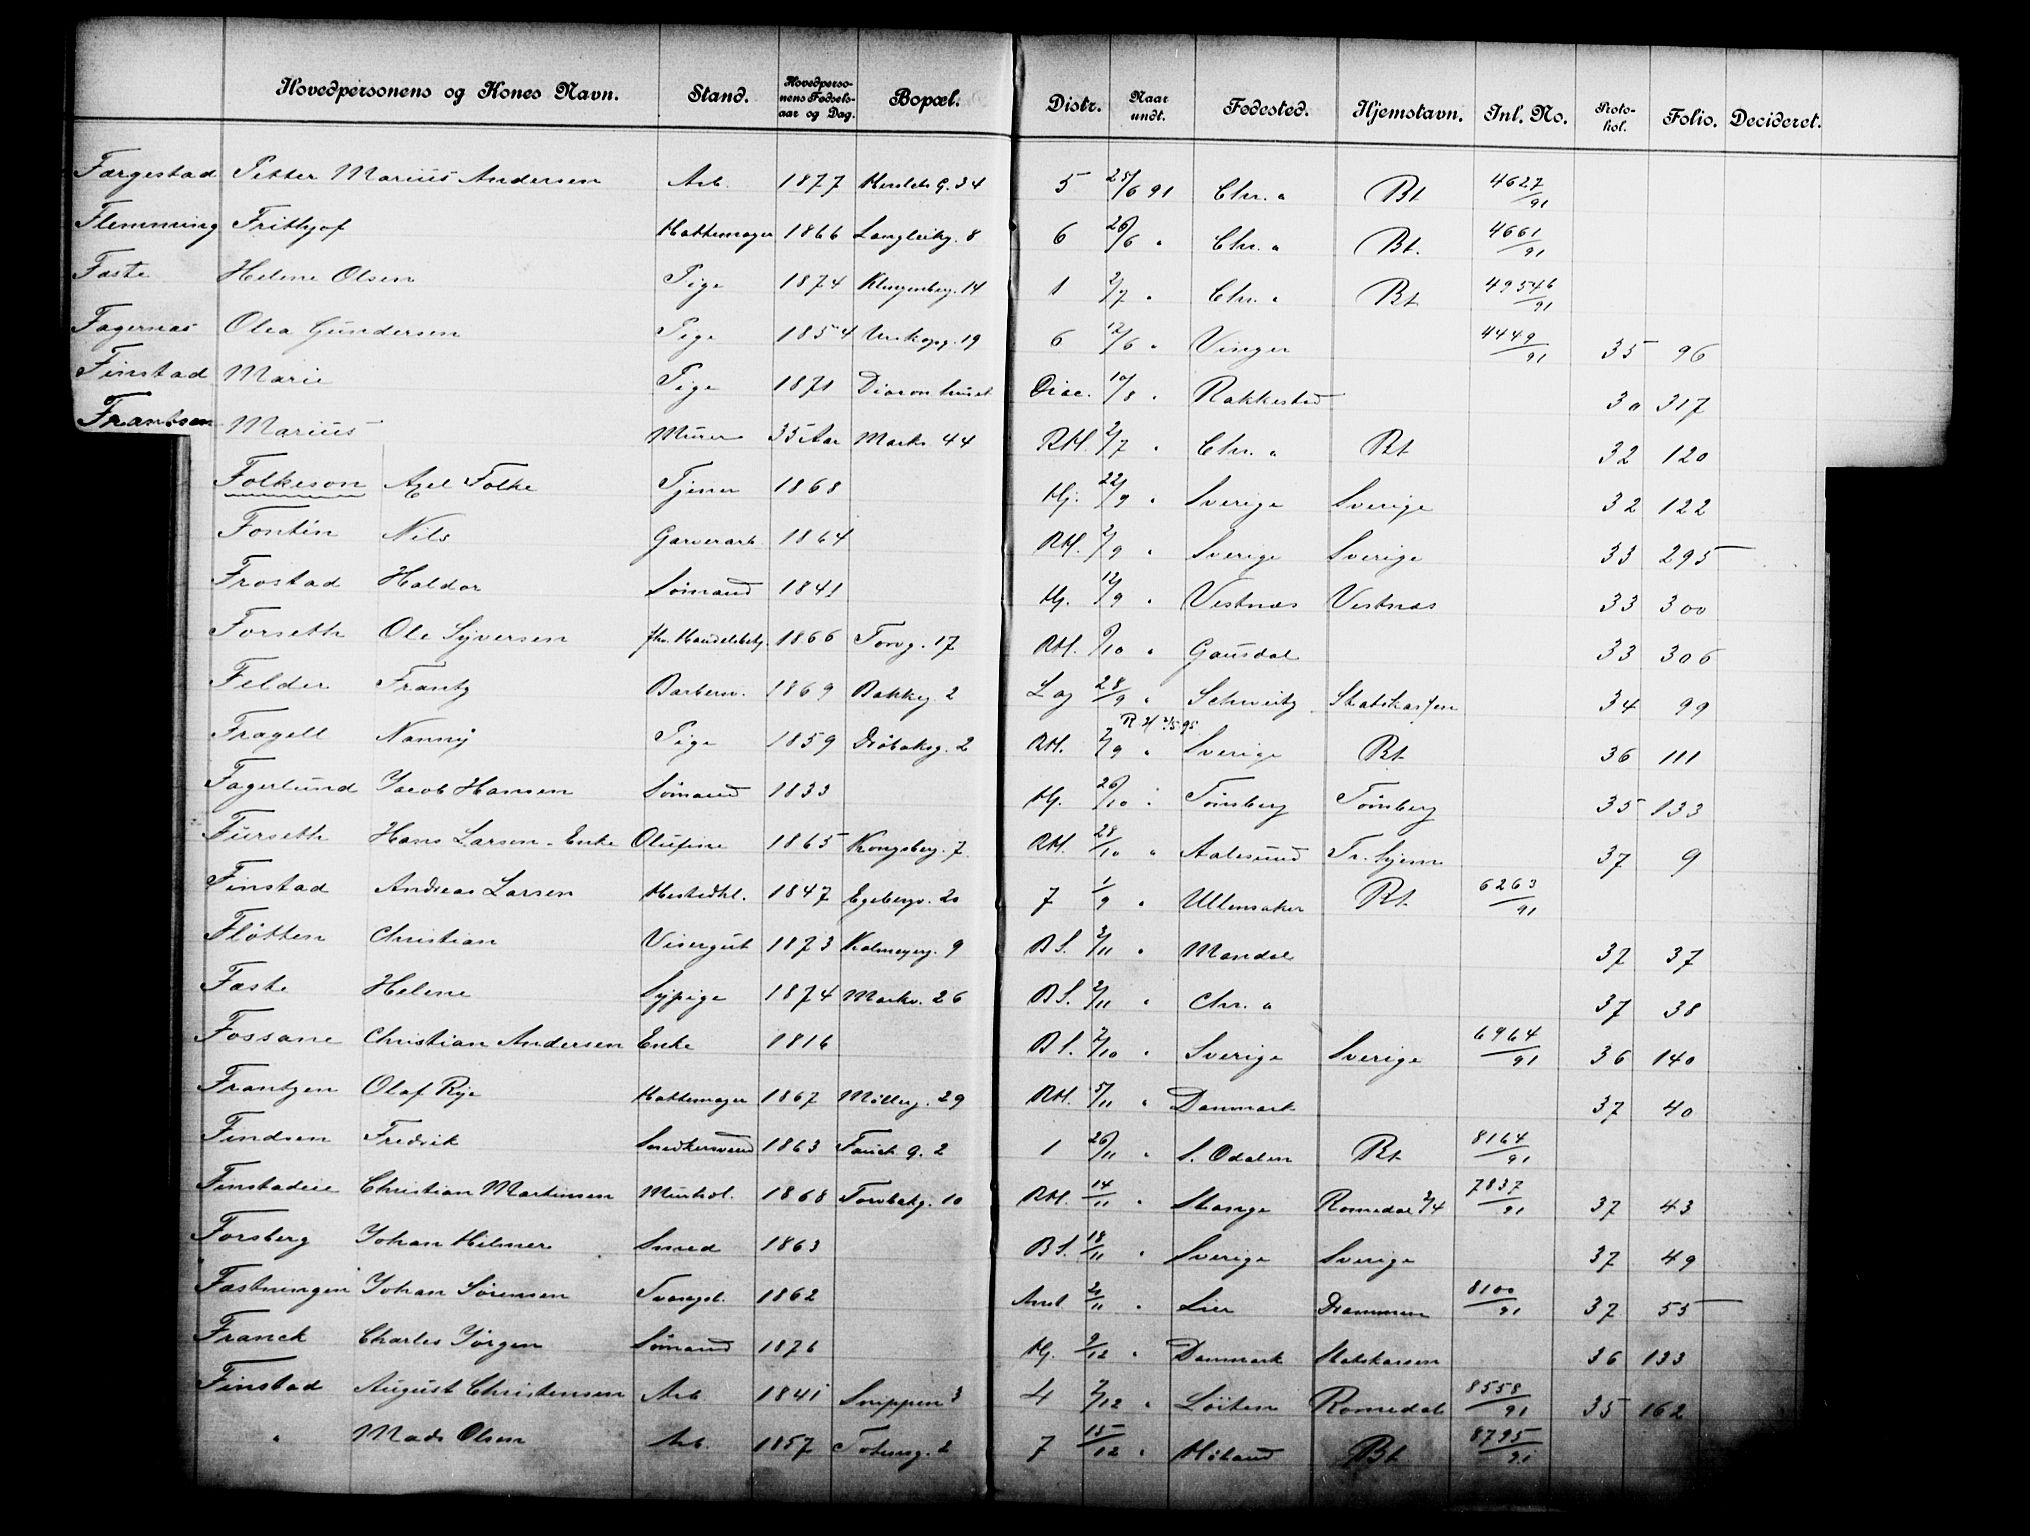 Hovedpersonens og Kones Navn. Stand. Hovedpersonens Fødsels-aar og Dag. Bopæl. Distr. Naar undt. Fødested. Hjemstavn. Inl. No. Protokol. Folio. Decideret.
Færgestad Petter Marius Andersen Arb. 1877 Herslebs G. 34 5 25/6 91 Chr. a Bt 4627/91
Flemming Frithjof Hattemager 1866 Langleikg. 8 6 26/6 " Chr. a Bt. 4661/91
Faste Helene Olsen Pige 1874 Klingenbg. 14 1 2/7 " Chr. a Bt 49546/91
Fagernæs Olea Gundersen Pige 1854 19 6 12/6 " Vinger 4449/91 35 96
Finstad Marie Pige 1871 Diaconhuset Diac. 10/8 " Rakkestad 30 317
Frantsen Marius Murer 35 Aar Markv 44 RH. 2/7 " Chr. a Bt 32 120
Folkeson Axel Folke Tjener 1868 Hj. 22/9 " Sverige Sverige 32 122
Fontin Nils Garverarb. 1864 RH. 2/9 " Sverige Sverige 33 295
Frostad Haldor Sømand 1841 Hj. 12/9 " Vestnæs Vestnæs 33 300
Forseth Ole Syversen fhv. Handelsbetj. 1866 Torvg. 17 RH. 9/10 " Gausdal 33 306
Felder Frantz Barbersv. 1869 Bakkeg 2 Log 28/9 " Schweitz Statskassen 34 99
Fragell Nanny Pige 1859 Drøbaksg. 2 RH. 2/9 " Sverige Bt 36 111
Fagerlund Jacob Hansen Sømand 1833 Hj. 26/10 " Tønsberg Tønsberg 35 133
Furseth Hans Larsen - Enke Olufine 1865 Kongsberg. 7. RH. 28/10 " Aalesund Tr.hjem 37 9
Finstad Andreas Larsen Hestedhl. 1847 Egebergv. 20 7 1/9 " Ullensaker Bt 6263/91
Fløtten Christian Visergut 1873 Kalmeyerg. 9 BS. 3/11 " Mandal 37 37
Faste Helene Sypige 1874 Markv. 26 BS. 2/11 " Chr. a 37 38
Fossane Christian Andersen Enke 1816 BS. 7/10 " Sverige Sverige 6964/91 36 140
Frantzen Olaf Rye Hattemager 1867 Møllerg. 29 RH. 5/11 " Danmark 37 40
Findsen Fredrik Snedkersvend 1863 Fauch. G. 2 1 26/11 " S. Odalen Bt 8164/91
Finstadeie Christian Martinsen Murhdl. 1868 Torvbakg. 10 RH. 14/11 " Stange Romedal 3/4 7837/91 37 43
Forsberg Johan Hilmer Smed 1863 BS. 18/11 " Sverige Sverige 37 49
Fæstningen Johan Sørensen Tvangsl. 1862 Anst 21/11 " Lier Drammen 8100/91 37 55
Franck Charles Jørgen Sømand 1876 Hj. 9/12 " Danmark Statskassen 36 133
Finstad August Christensen Arb. 1841 Snippen 3 4 7/12 " Løiten Romedal 8558/91 35 162
" Mads Olsen Arb. 1857 Totensg. 2 7 15/12 " Høland Bt 8795/91